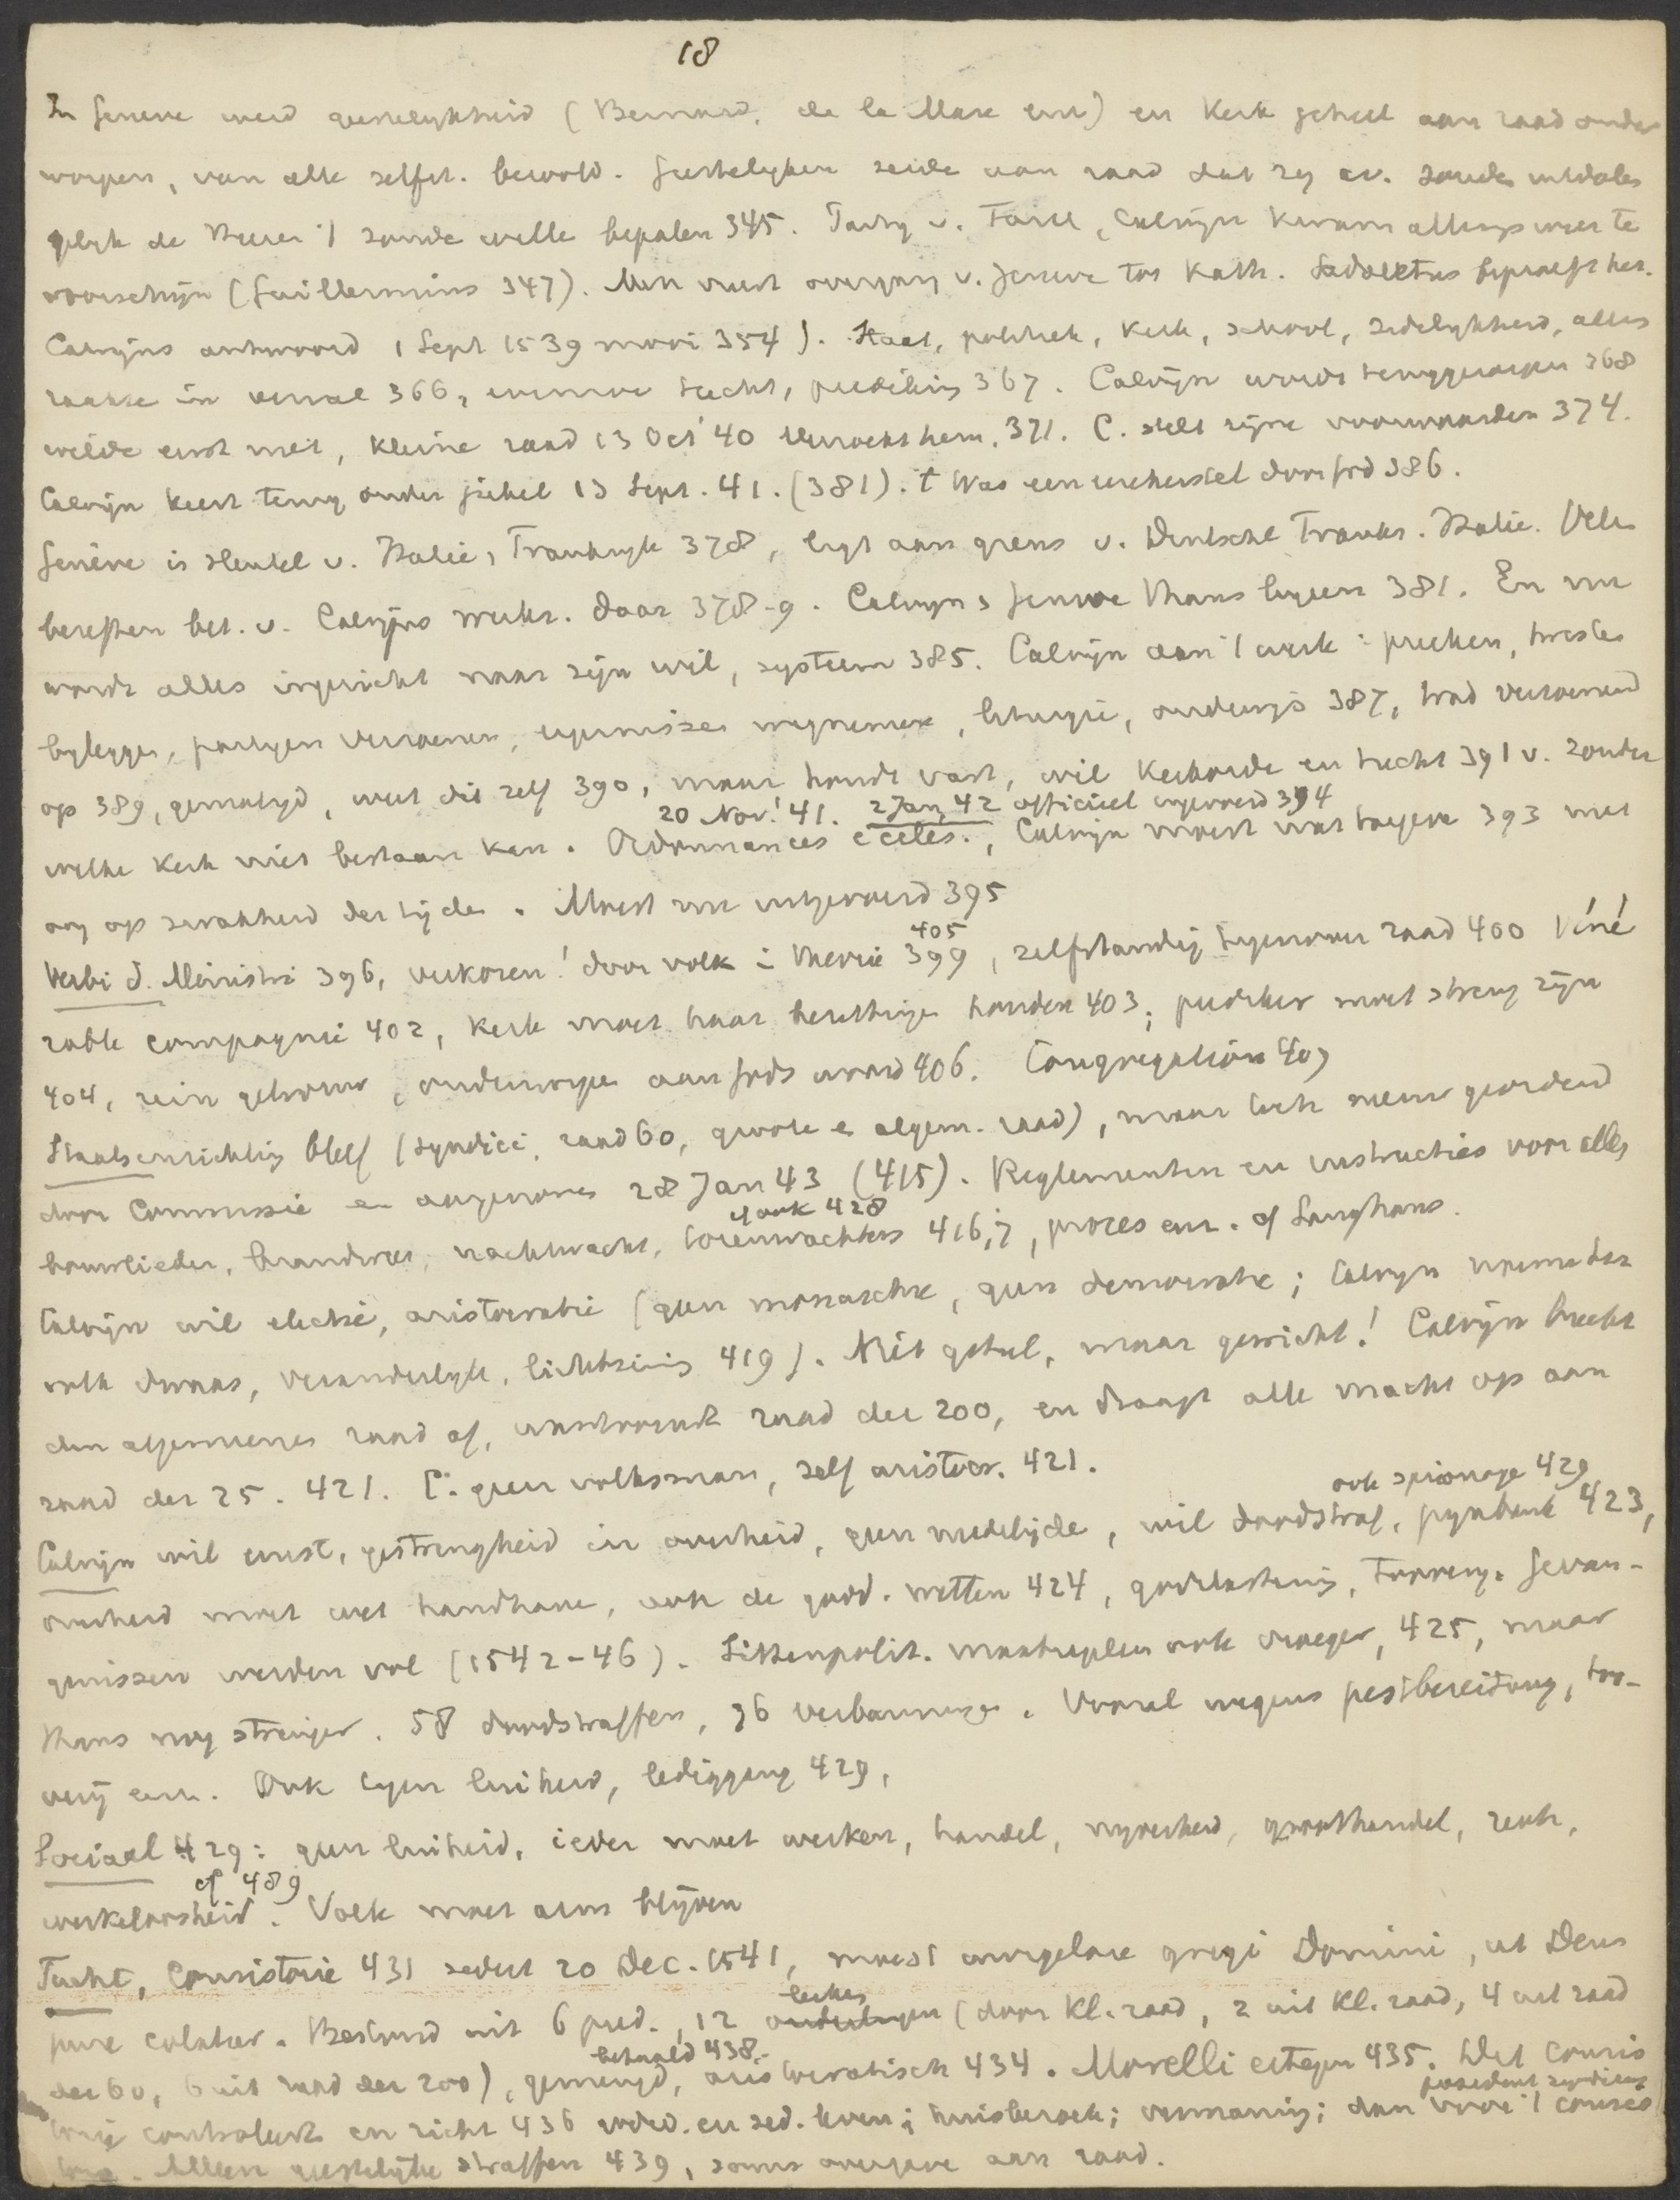 18
In Geneve werd geestelykheid (Bernard, de la Mare enz) en Kerk geheel aan raad onder
worpen, van alle zelfst. beroofd. Geestelyken zeide aan raad dat zy av. zouden uitdeelen
gelyk de Heeren 't zoude wille bepalen 345. Party v. Farel, Calvijn kwam allengs weer te
voorschijn (Guillermins 347). Men vreest overgang v. Geneve tot Kath. Sadoletus beproeft het.
Calvijns antwoord 1 Sept 1539 mooi 354). Staat, politiek, Kerk, school, zedelykheid, alles
raakte in verval 366, evenzoo tucht, prediking 367. Calvijn wordt teruggeroepen 368
wilde eerst niet, kleine raad 13 Oct '40 verzoekt hem. 371. C. stelt zijne voorwaarden 374.
Calvijn keert terug onder gejubel 13 Sept. 41. (381). 't Was een eerherstel door God 386.
Genève is sleutel v. Italië, Frankryk 378, ligt aan grens v. Duitschl. Frankr. Italie. Velen
beseften bet. v. Calvijns werkz. daar 378-9. Calvyn & Geneve thans byeen 381. En nu
wordt alles ingericht naar zijn wil, systeem 385. Calvijn aan 't werk: preeken, twisten
byleggen, partyen verzoenen, ergernissen wegnemen, liturgie, onderwijs 387, trad verzoenend
op 389, gematigd, weet dit zelf 390, maar houdt vast, wil Kerkorde en tucht 391 v. zonder
20 Nov! 41. 2 Jan, 42 officieel ingevoerd 394
welke Kerk niet bestaan kan. Ordonnances eccles., Calvijn moest wat toegeve 393 met
oog op zwakheid der tijden. Moest nu uitgevoerd 395
405
Verbi d. Ministri 396, verkoren! door volk in theorie 399, zelfstandig tegenover raad 400 Véné
rable compagnie 402, Kerk moet haar bezittingen houden 403; prediker moet streng zijn
404, rein gehouden, onderworpen aan Gods woord 406. Congregations 407
Staatsinrichting bleef (syndici, raad 60, groote en algem. raad), maar toch nieuw geordend
door Commissie en aangenomen 28 Jan 43 (415). Reglementen en instructies voor alles
y ook 428
bouwlieden, brandweer, nachtwacht, torenwachters 416,7, proces enz. cf Langhans.
Calvijn wil electie, aristocratie (geen monarchie, geen democratie; Calvyn noemde het
volk dwaas, veranderlyk, lichtzinnig 419). Niet getal, maar gewicht! Calvijn breekt
den algemeenen raad af, wantrouwt raad der 200, en draagt alle macht op aan
raad der 25. 421. C. geen volksman, zelf aristocr. 421.
ook spionage 429
Calvijn wil ernst, gestrengheid in overheid, geen medelijde, wil doodstraf, pynbank 423,
overheid moet wet handhave, ook de godd. wetten 424, godslastering, toovery. Gevan-
genissen werden vol (1542-46). Sittenpolit. maatregelen ook vroeger, 425, maar
thans nog strenger. 58 doodstraffen, 76 verbanningen. Vooral wegens pestbereidung, too-
very enz. Ook tegen luiheid, lediggang 429,
Sociaal 429: geen luiheid, ieder moet werken, handel, nyverheid, groothandel, rente,
cf 489
werkeloosheid. Volk moet arm blijven
Tucht, Consistorie 431 sedert 20 Dec. 1541, moest invigelare gregi Domini, ut Deus
leeken
pure colatur. Bestond uit 6 pred., 12 ouderlingen (door Kl. raad, 2 uit Kl. raad, 4 uit raad
betaald 438.
der 60, 6 uit raad der 200), gemengd, aristocratisch 434. Morelli ertegen 435. Dit consis
president syndicus
torie controleert en richt 436 godsd. en zed. leven; huisbezoek; vermaning; dan voor 't consis
torie. Alleen geestelyke straffen 439, soms overgave aan raad.